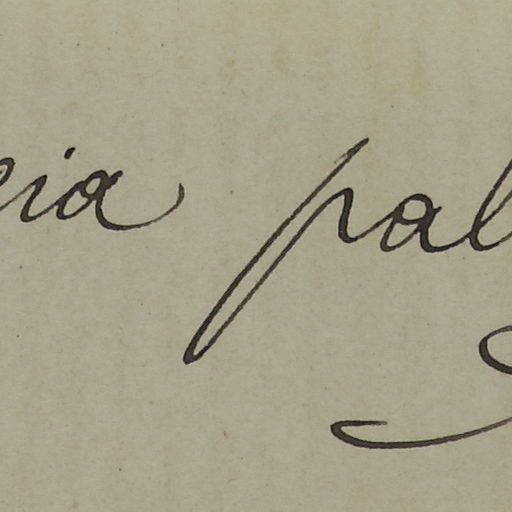 eia pal